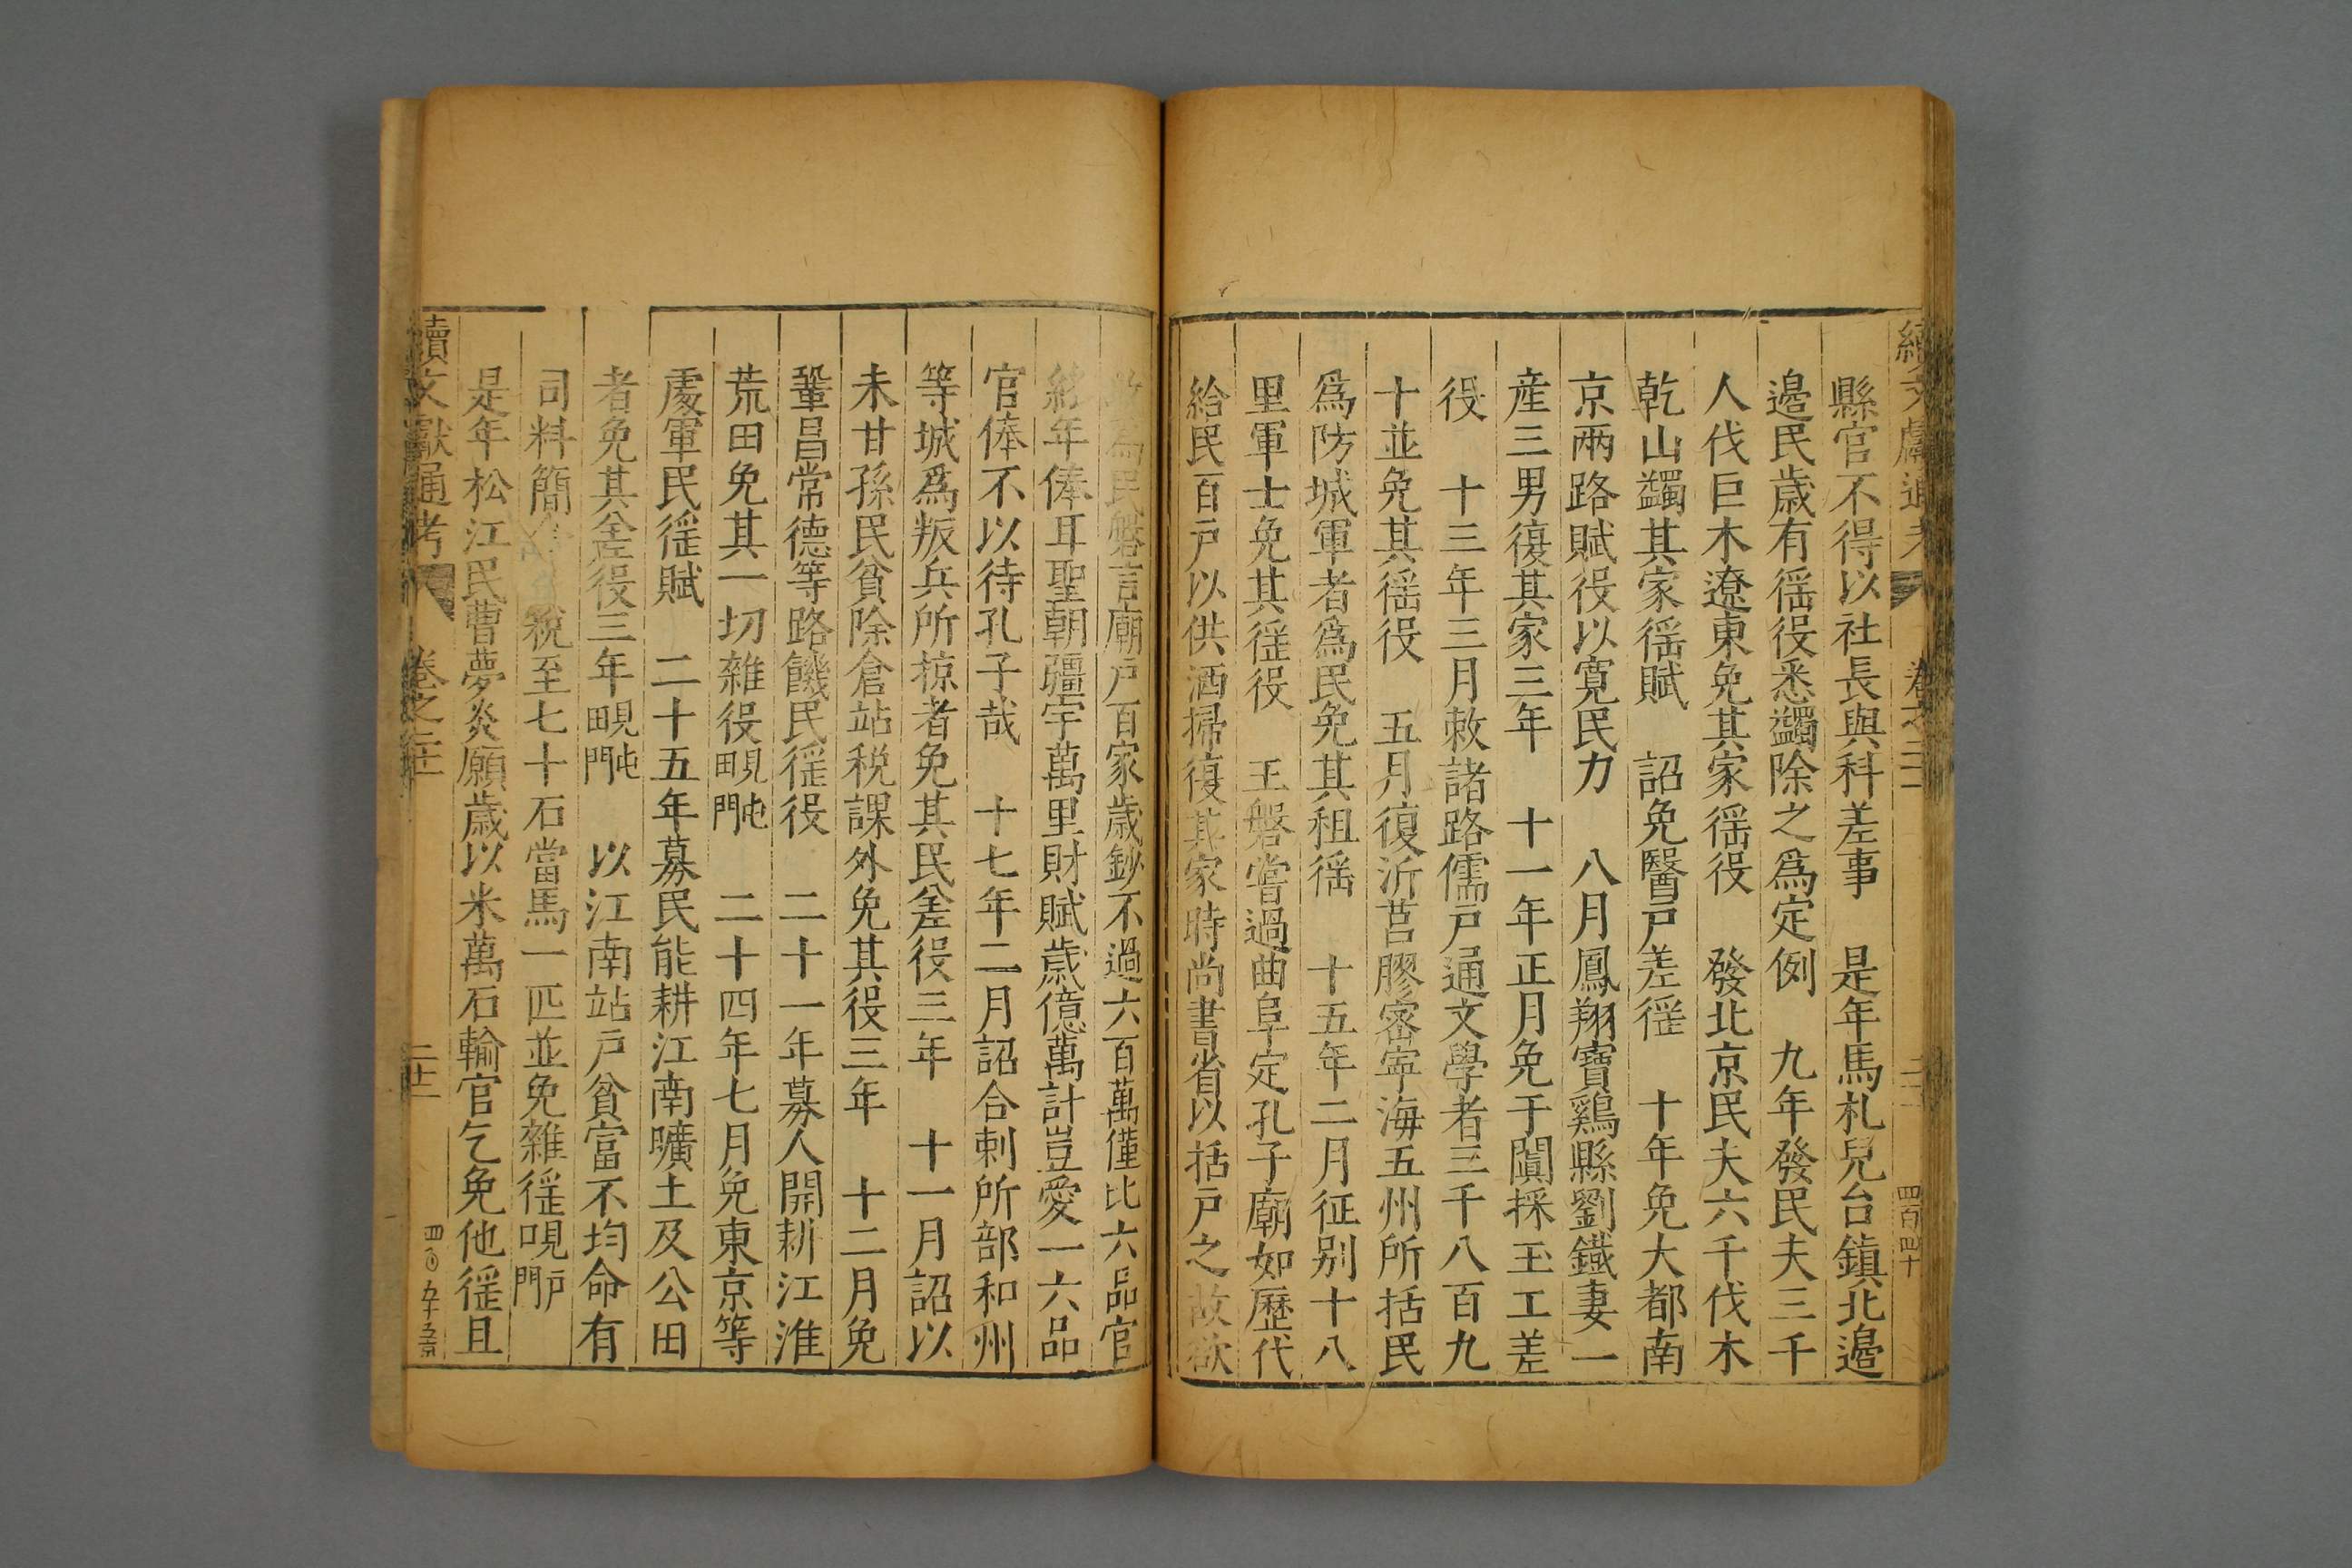 縣官不得以社長與科差事　是年馬札兒台鎮北邉
邉民歳有徭役悉蠲除之爲定例　九年發民夫三千
人伐巨木遼東免其家徭役　發北京民夫六千伐木
乾山蠲其家徭賦　詔免醫戸差徭　十年免大都南
京兩路賦役以寛民力　八月鳳翔寶鷄縣劉鐵妻一
産三男復其家三年　十一年正月免于闐採玉工差
役　十三年三月敕諸路儒戸通文學者三千八百九
十並免其徭役　五月復沂莒膠宻寧海五州所括民
爲防城軍者爲民免其租徭　十五年二月征别十八
里軍士免其徭役　王磐嘗過曲阜定孔子廟如歴代
給民百戸以供洒掃復其家時尚書省以括戸之故欲
爲民磐言廟戸百家歳鈔不過六百萬僅比六品官
終年俸耳聖朝疆宇萬里財賦歳億萬計豈愛一六品
官俸不以待孔子哉　十七年二月詔合剌所部和州
等城爲叛兵所掠者免其民差役三年　十一月詔以
未甘孫民貧除倉站税課外免其役三年　十二月免
鞏昌常德等路饑民徭役　二十一年募人開耕江淮
荒田免其一切雜役見屯田門　二十四年七月免東京等
處軍民徭賦　二十五年募民能耕江南曠土及公田
者免其差役三年見屯田門　以江南站戸貧富不均命有
司料簡税至七十石當馬一匹並免雜徭見戸口門
是年松江民曹夢炎願歳以米萬石輸官乞免他徭且
續文獻通考　卷之二十一　二十二